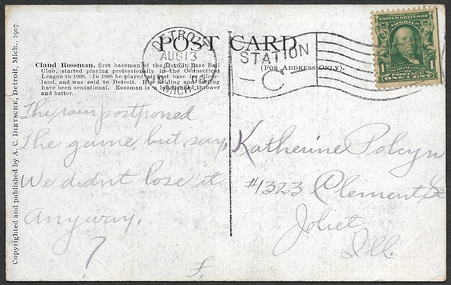 POST CARD
(For Address Only).
Claud Rossman, first baseman of the Detroit Base Ball
Club, started playing professionally in the Connecticut
League in
and was sold to Detroit. His fielding and
have been sensational. Rossman is a left-handed thrower
and batter.
Copyrighted and published by A. C. Dietsche, Detroit, Mich., 1907
DETROIT
AUG 13
MICH.
STATION
C
The rain postponed
The game but say,
We didnt lose it
Anyway.
?
f
Katherine Polcyn
#1323 Clement St
Joliet
Ill.